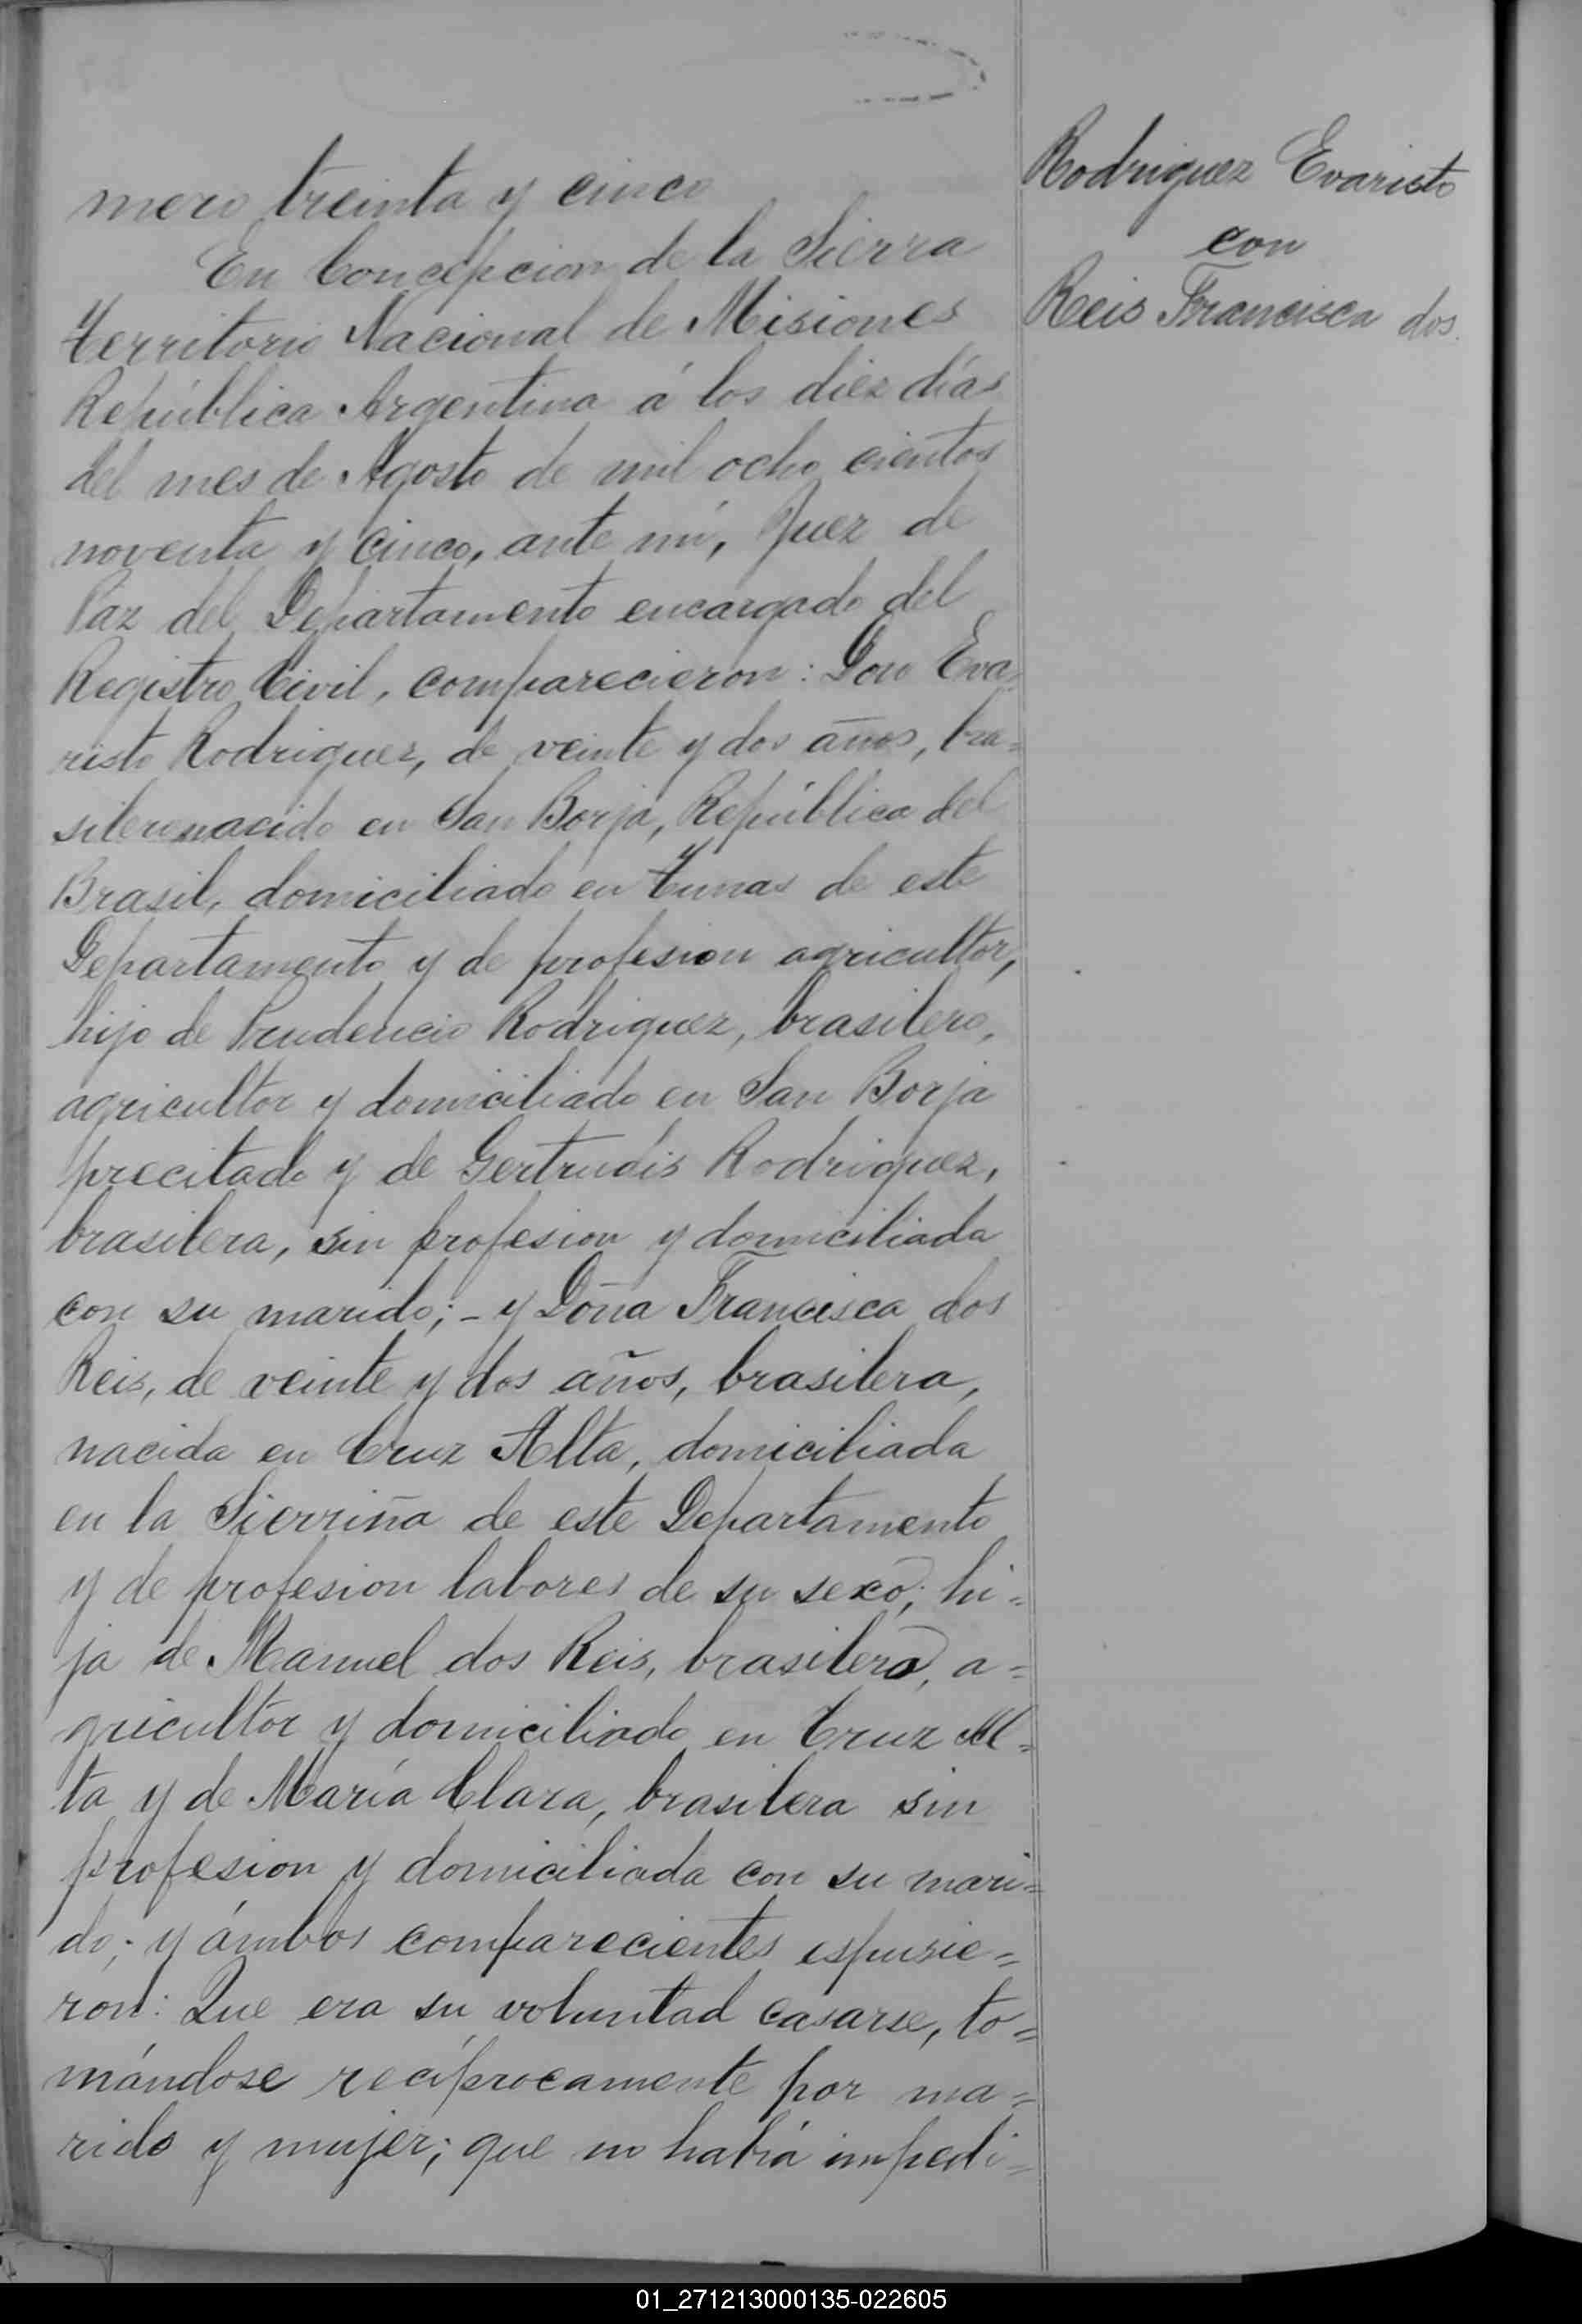 mero treinta y cinco
En Concepcion de la Sierra
Territorio Nacional de Misiones
República Argentina á los diez días
del mes de Agosto de mil ocho cientos
noventa y cinco, ante mí, Juez de
Paz del Departamento encargado del
Registro Civil, comparecieron: Don Eva-
risto Rodriguez, de veinte y dos años, bra=
silero nacido en San Borja, República del
Brasil, domiciliado en Tunas de este
Departamento y de profesion agricultor,
hijo de Prudencio Rodriguez, brasilero,
agricultor y domiciliado en San Borja
precitado y de Gertrudis Rodriguez,
brasilera, sin profesion y domiciliada
con su marido; - y Doña Francisca dos
Reis, de veinte y dos años, brasilera,
nacida en Cruz Alta, domiciliada
en la Sierriña de este Departamento
y de profesion labores de su sexo; hi=
ja de Manuel dos Reis, brasilero, a=
gricultor y domiciliado en Cruz Al=
ta y de María Clara, brasilera sin
profesion y domiciliada con su mari=
do; y ámbos comparecientes espusie=
ron: Que era su voluntad casarse, to=
mándose recíprocamente por ma=
rido y mujer; que no había impedi=
Rodriguez Evaristo
con
Reis Francisca dos
01_271213000135-022605